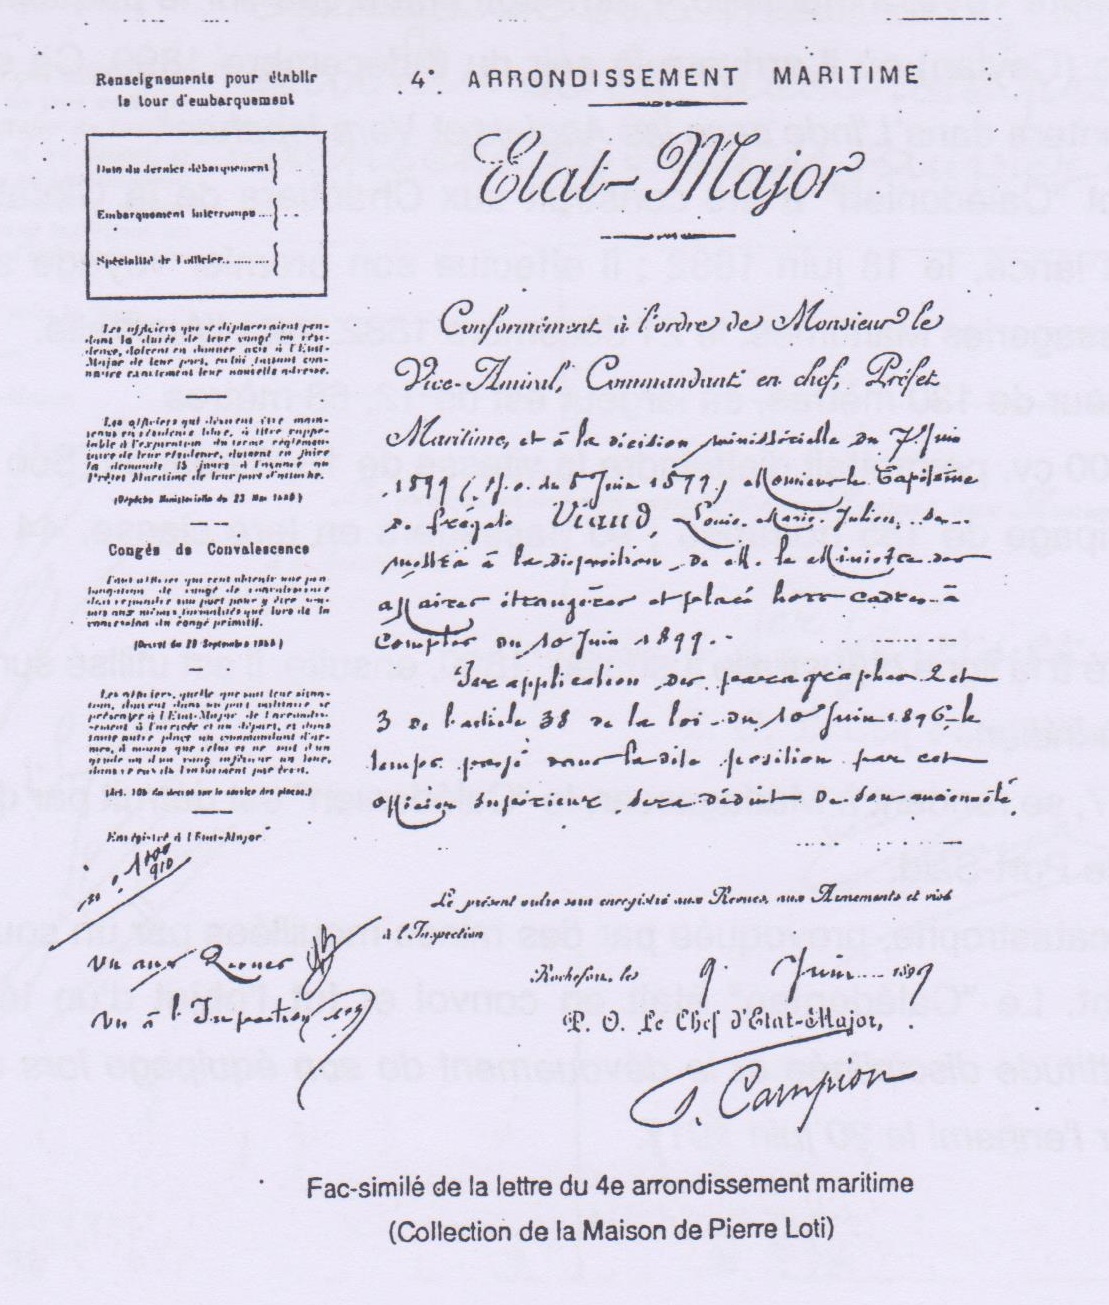 Renseignements pour établir
le tour d'embarquement
Date du dernier débarquement
Embarquement interrompu
Spécialité de l'officier
Les officiers qui se déplaceraient pen-
dant la durée de leur congé ou rési-
dence, doivent en donner avis à l'État-
Major de leur port, en lui faisant con-
naître exactement leur nouvelle adresse.
Les officiers qui désirent être main-
tenus en résidence libre, à titre
à l'expiration du terme réglemen-
taire de leur résidence, doivent en faire
la demande 15 jours à l'avance au
Préfet Maritime de leur port d'attache.
(Dépêche Ministérielle du 23 Mai 1896)
Congés de Convalescence
Tout officier qui veut obtenir une pro-
longation de congé de convalescence
doit rejoindre son port pour y être
aux mêmes formalités que lors de la
concession du congé primitif.
(Décret du 28 Septembre)
Les officiers, quelle que soit leur situa-
tion, doivent dans un port militaire se
présenter à l'État-Major de l'arrondis-
sement à l'arrivée et au départ, et dans
tout autre place au commandant d'ar-
mes, à moins que celui-ci ne soit d'un
grade ou d'un rang inférieur au leur,
(Art. du décret sur le service des places)
Enregistré à l'État-Major
n°
910
Vu aux Revues
Vu à l'Inspection
4e ARRONDISSEMENT MARITIME
Etat-Major
Conformément à l'ordre de Monsieur le
Vice-Amiral, Commandant en chef, Préfet
Maritime, et à la décision ministérielle du 7 Juin
1899 (J. o. du 8 Juin 1899) Monsieur le Capitaine
de frégate Viaud, Louis, Marie, Julien, est
mis à la disposition de M. le Ministre des
affaires étrangères et placé hors cadres à
compter du 10 Juin 1899.
Par application des paragraphes 2 et
3 de l'article 38 de la loi du 10 Juin 1896 le
temps passé dans ladite position par cet
officier supérieur sera déduit de son ancienneté.
Le présent ordre sera enregistré aux Revues, aux Armements et visé
à l'Inspection
Rochefort, le 9 Juin 1899
P. O. Le Chef d'État-Major,
Campion
Fac-similé de la lettre du 4e arrondissement maritime
(Collection de la Maison de Pierre Loti)